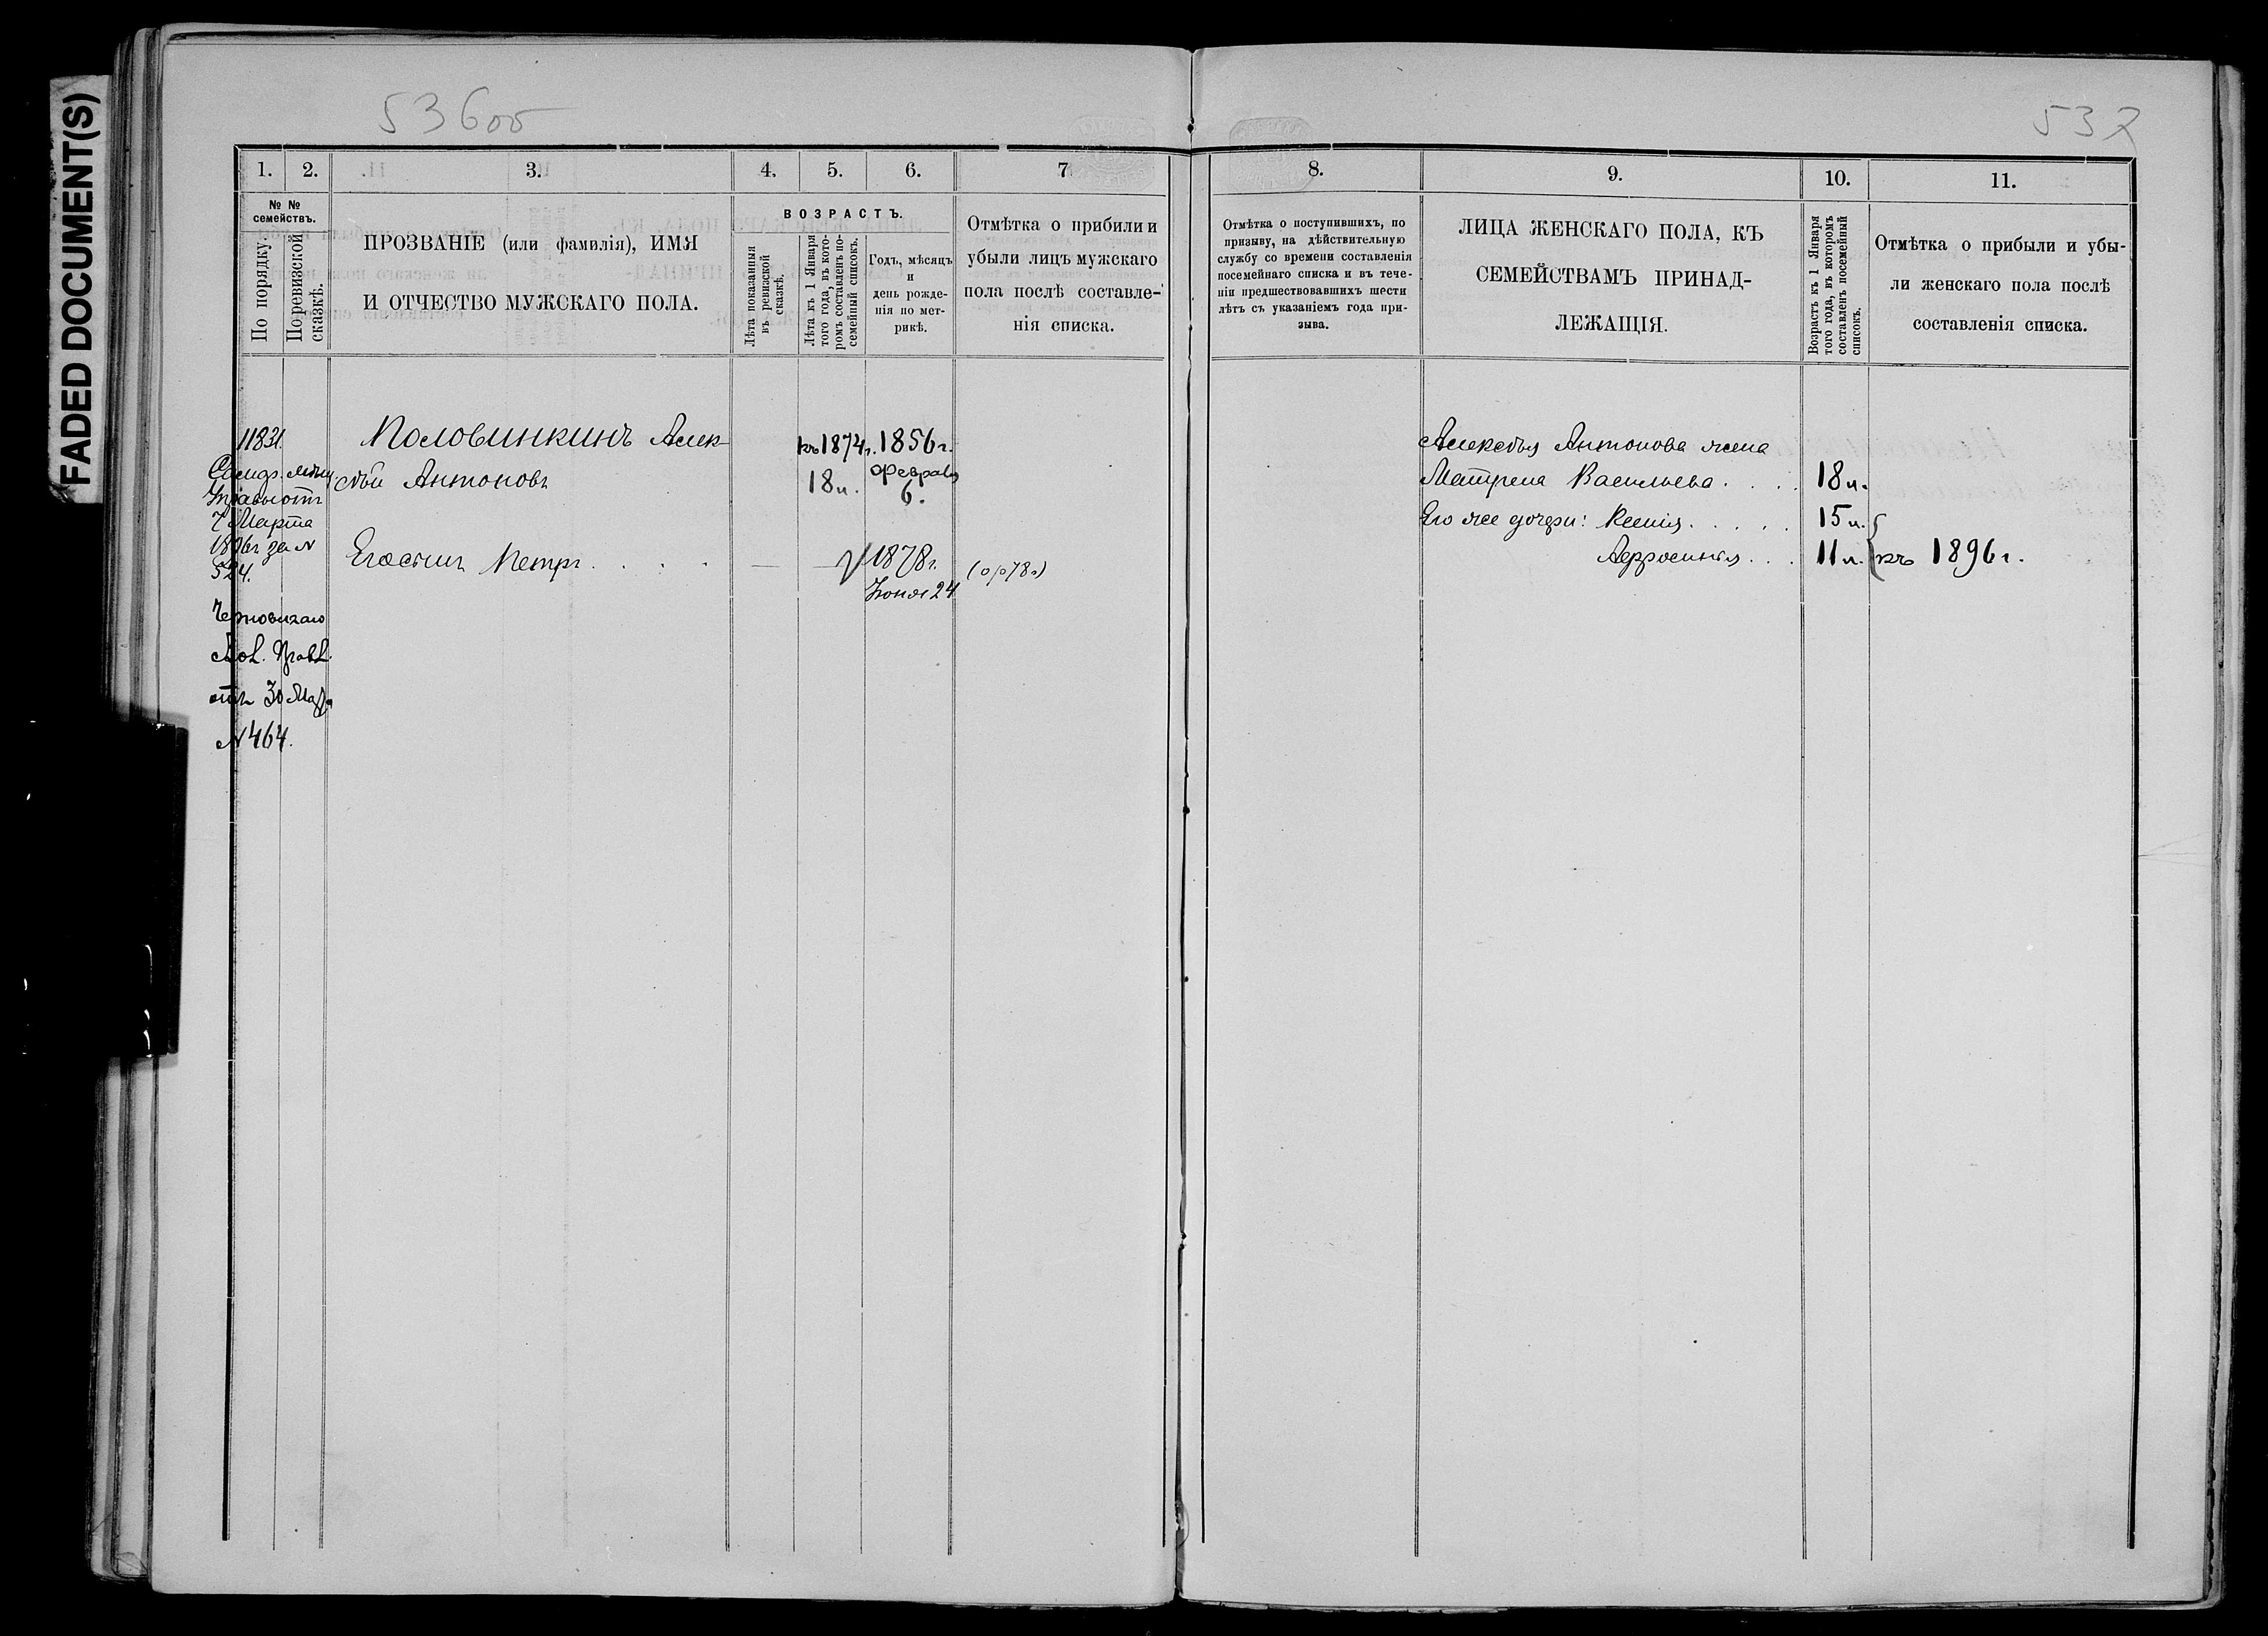 FADED DOCUMENT(S)
536об
537
1. 2. 3. 4. 5. 6. 7
№ №
семействъ.
По порядку.
По ревизской
сказкѣ.
ПРОЗВАНІЕ (или фамилія), ИМЯ
И ОТЧЕСТВО МУЖСКАГО ПОЛА.
ВОЗРАСТЪ.
Лѣта показанныя
въ ревизской
сказкѣ.
Лѣта къ 1 Января
того года, въ кото-
ромъ составленъ по-
семейный списокъ.
Годъ, мѣсяцъ
и
день рожде-
нія по мет-
рикѣ.
Отмѣтка о прибыли и
убыли лицъ мужскаго
пола послѣ составле-
нія списка.
11831.
мѣщ
Управы отъ
7 Марта
1896г за №
524.
Прав.
отъ 30 Мар
№ 464.
Половинкинъ Алек-
сѣй Антоновъ
къ 1874г. 1856г.
18 л. Февраля
6.
Его сынъ Петръ . . . . — — 1878г. (ор 78г)
Іюня 24
8. 9. 10. 11.
Отмѣтка о поступившихъ, по
призыву, на дѣйствительную
службу со времени составленія
посемейнаго списка и въ тече-
ніи предшествовавшихъ шести
лѣтъ съ указаніемъ года при-
зыва.
ЛИЦА ЖЕНСКАГО ПОЛА, КЪ
СЕМЕЙСТВАМЪ ПРИНАД-
ЛЕЖАЩІЯ.
Возрастъ къ 1 Января
того года, въ которомъ
составленъ посемейный
списокъ.
Отмѣтка о прибыли и убы-
ли женскаго пола послѣ
составленія списка.
Алексѣя Антонова жена
Матрена Васильева . . . . 18 л.
Его же дочери: Ксенія . . . . . 15 л.
Афросинья . . . 11 л. къ 1896г.